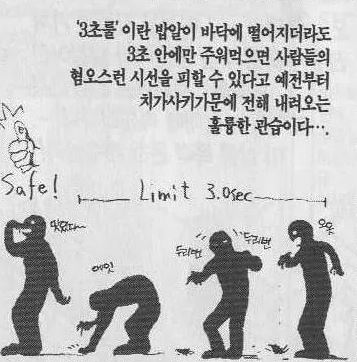 '3초룰' 이란 밥알이 바닥에 떨어지더라도
3초 안에만 주워먹으면 사람들의
혐오스런 시선을 피할 수 있다고 예전부터
치가사키가문에 전해 내려오는
훌륭한 관습이다….
Safe!
Limit 3.0sec
맛있다~
두리번
두리번
오옷